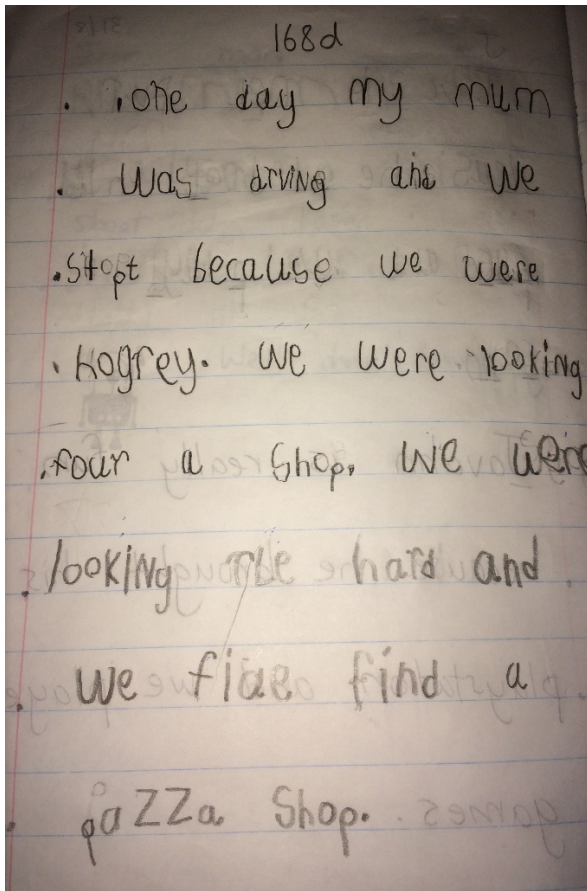 168d
one day my mum
was drving and we
stopt because we were
hogrey. we were looking
four a shop. we were
looking rle hard and
we fiae find a
pazza shop.